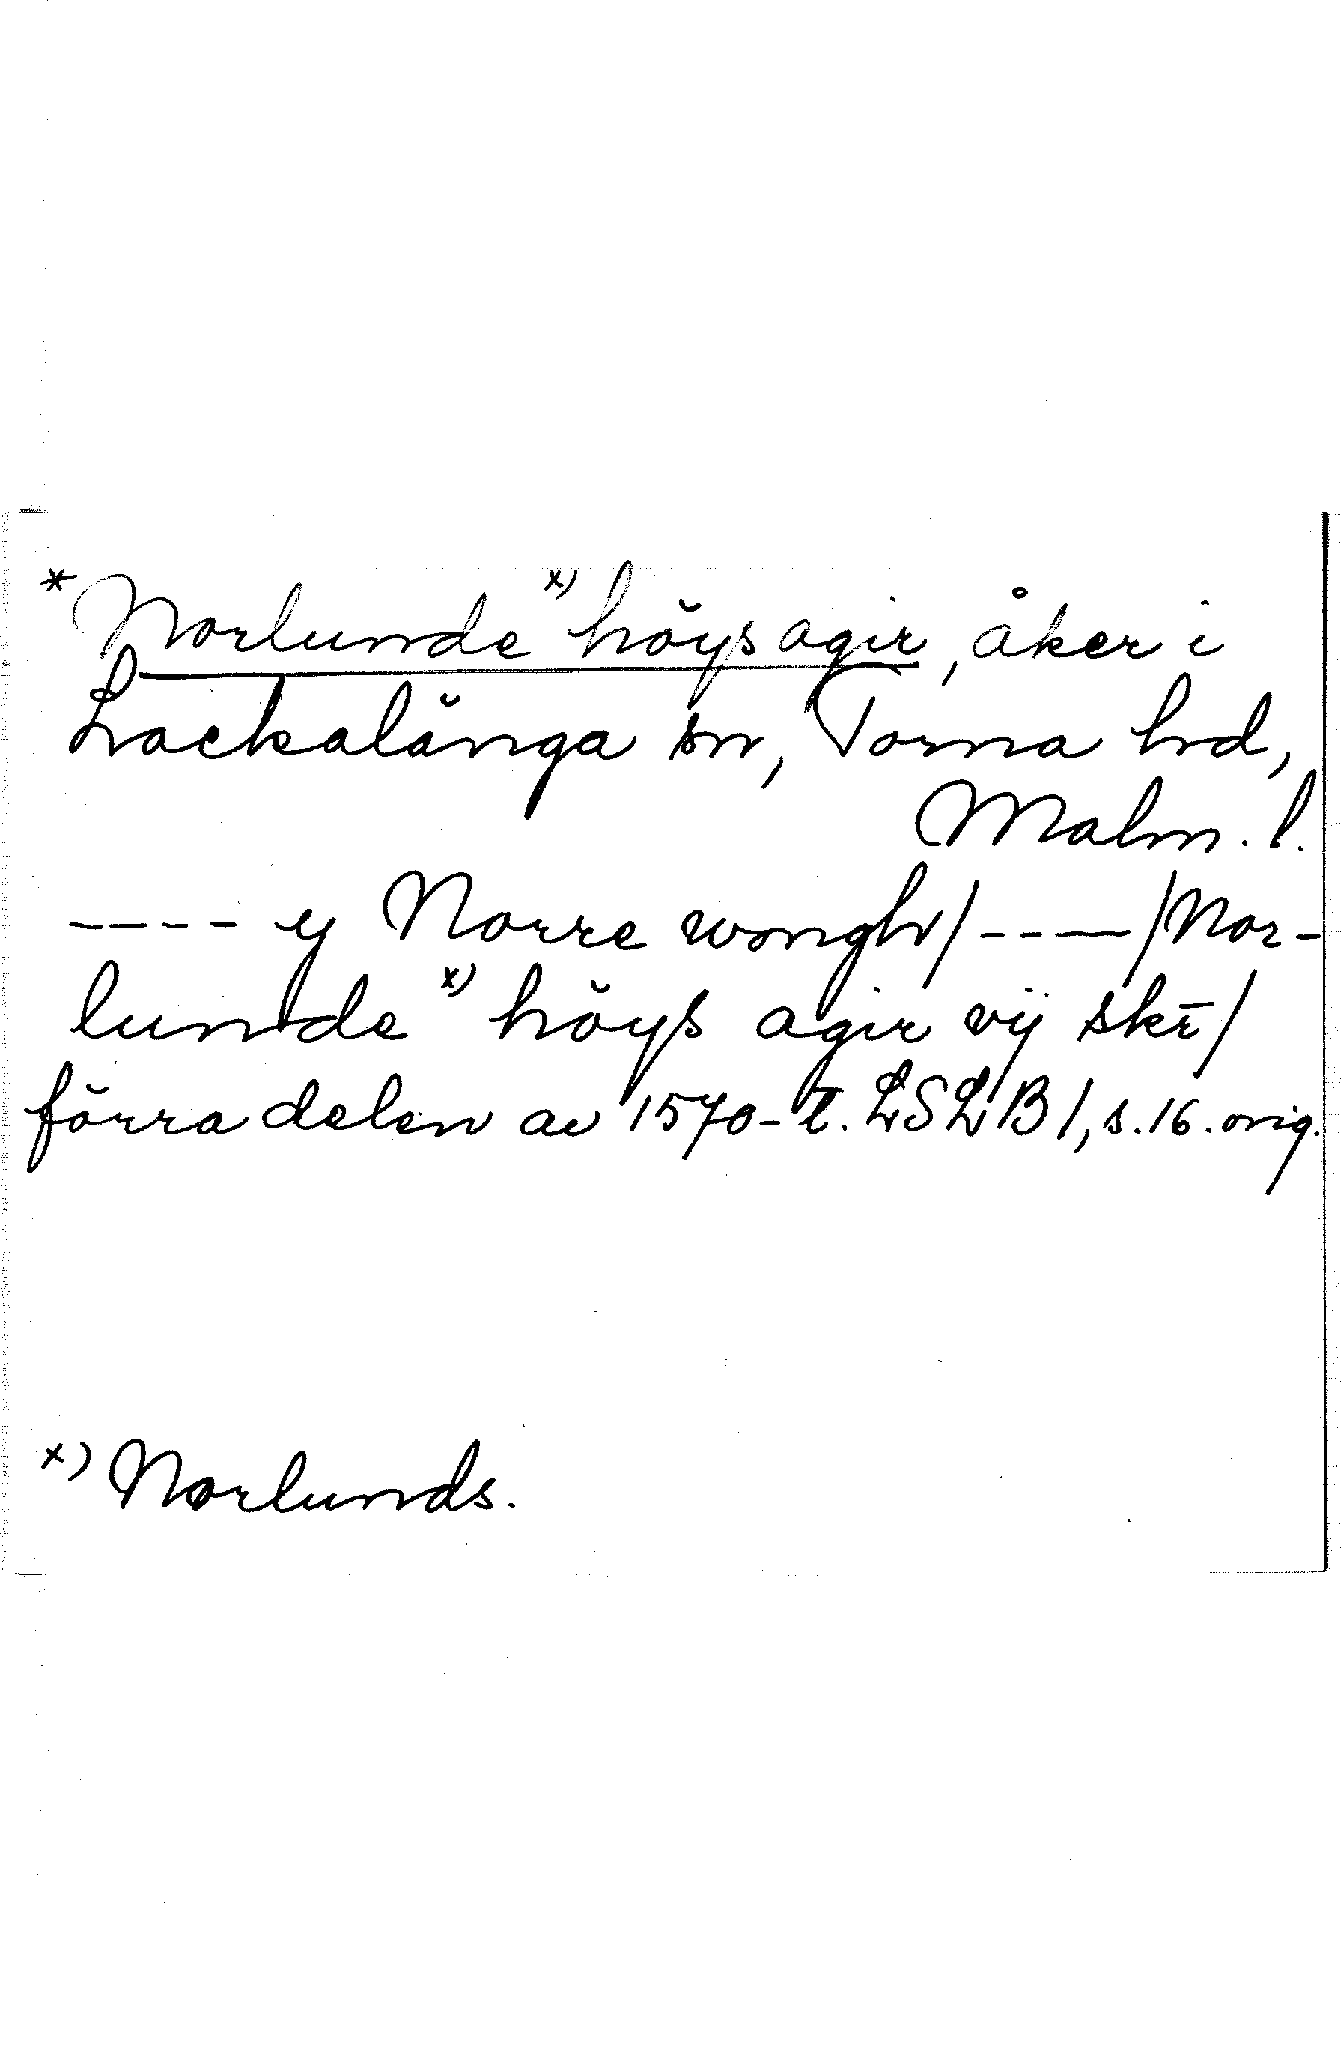 *Norlunde x) höys agir, åker i
Lackalänga sn, Torna hd,
Malm. l.
---- y Norre wongh/----/Nor-
lunde x) höys agir vij skr̄/
förra delen av 1570-t. LSLB 1, s. 16. orig.
x) Norlunds.